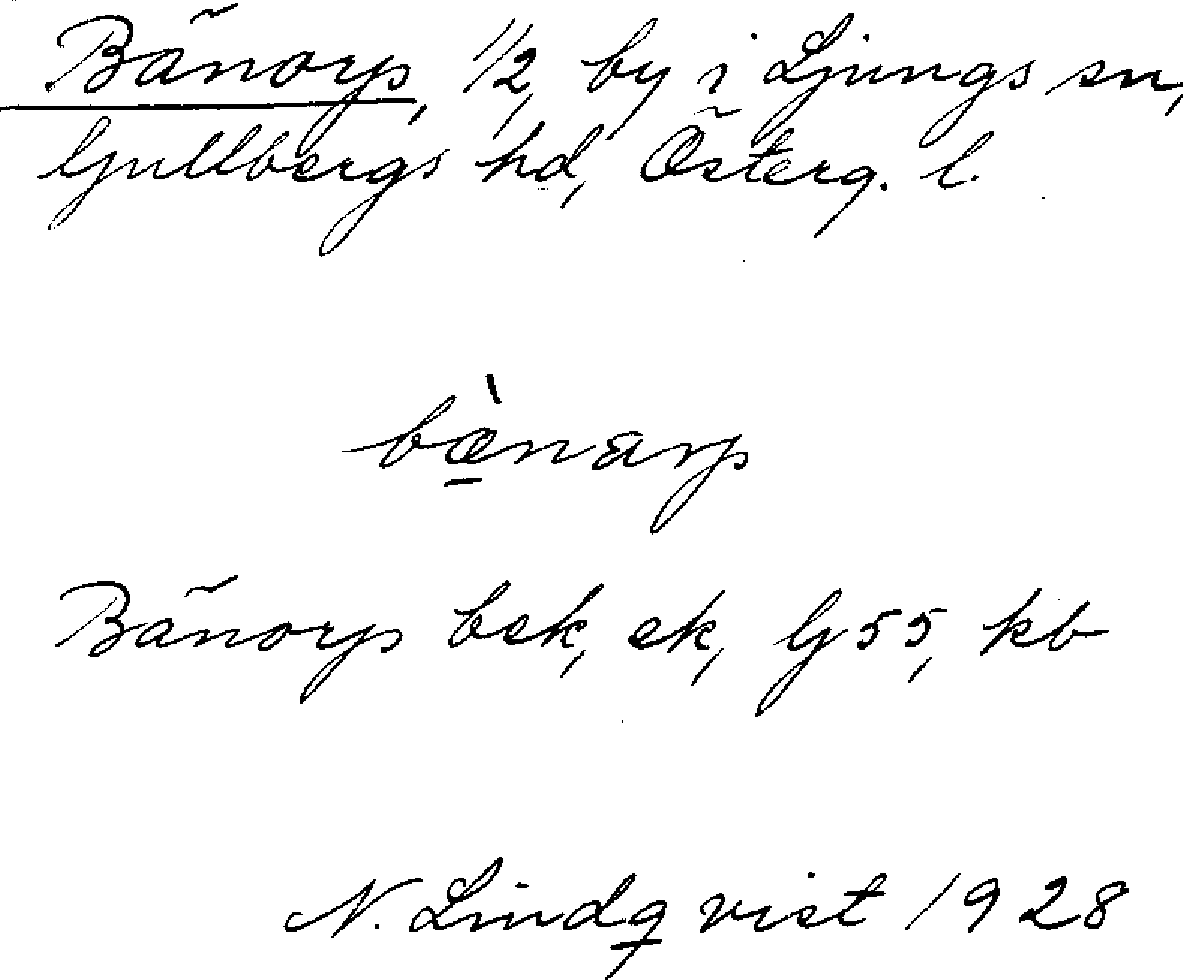 Bänorp, 1/2, by i Ljungs sn,
Gullbergs hd, Österg. l.
bæ̀narp
Bänorp bsk, ek, G55, kb
N. Lindqvist 1928